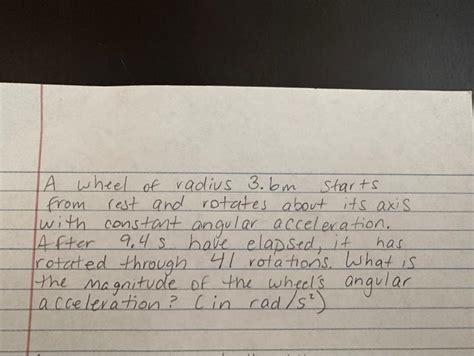 A wheel of radius 3.6m starts
from rest and rotates about its axis
with constant angular acceleration.
After 9.4 s have elapsed, it has
rotated through 41 rotations. What is
the magnitude of the wheel's angular
acceleration? (in rad/s²)